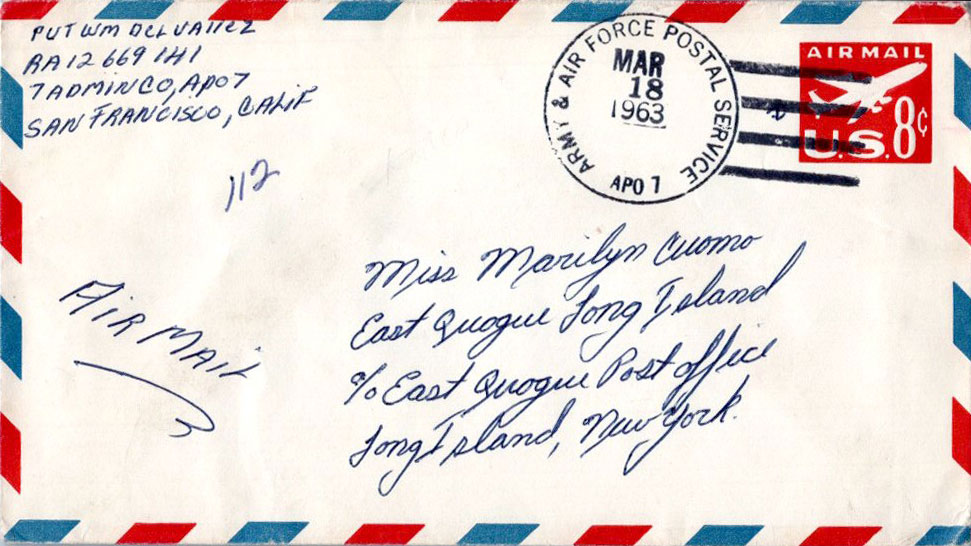 PVT WM DELVALLEZ
RA12 669 141
7ADMINCO, APO7
SAN FRANCISCO, CALIF
ARMY & AIR FORCE POSTAL SERVICE
MAR
18
1963
APO 7
AIR MAIL
U.S. 8¢
112
Miss Marilyn Cuomo
East Quogue Long Island
c/o East Quogue Post office
Long Island, New York.
AIR MAIL